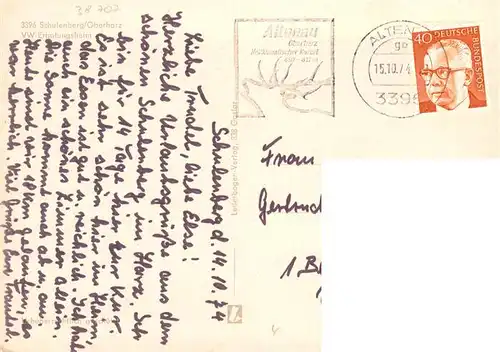 3A 707
3396 Schulenberg/Oberharz
VW Erholungsheim
Schulenberg d. 14.10.74
Liebe Traudel, liebe Else!
Herzliche Urlaubsgrüße aus dem
schönen Schulenberg im Harz. Ich
bin für 14 Tage hier zur Kur.
Es ist sehr schön hier im Heim,
das Essen ist gut u. reichlich. Ich habe
auch ein schönes Zimmer allein
die Sonne kommt auch ab u. an
Heute sind wir 18 km gelaufen, es
war herrlich. Viel Grüße Eure Traudel.
Altenau
Oberharz
Heilklimatischer Kurort
ALTENAU
15.10.74
3396
40 DEUTSCHE
BUNDESPOST
Frau
Gertrud
1 B